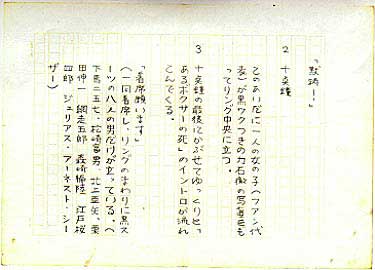 「黙祷ー!」
2 十点鐘
このあいだに一人の女の子(ファン代
表)が黒ワクつきの力石徹の写真をも
ってリング中央に立つ。
3
十点鐘の最後にかぶせてゆっくりと「
あるボクサーの死」のイントロが流れ
こんでくる。
「着席願います」
(一同着席し、リングのまわりに黒ス
ーツの八人の男だけが立っている。(
下馬二五七、松崎富男、北二亜矢、栗
田伸一 網走五郎 森崎偏陸 江戸桜
四郎 ジュリアス・アーネスト・シー
ザー)